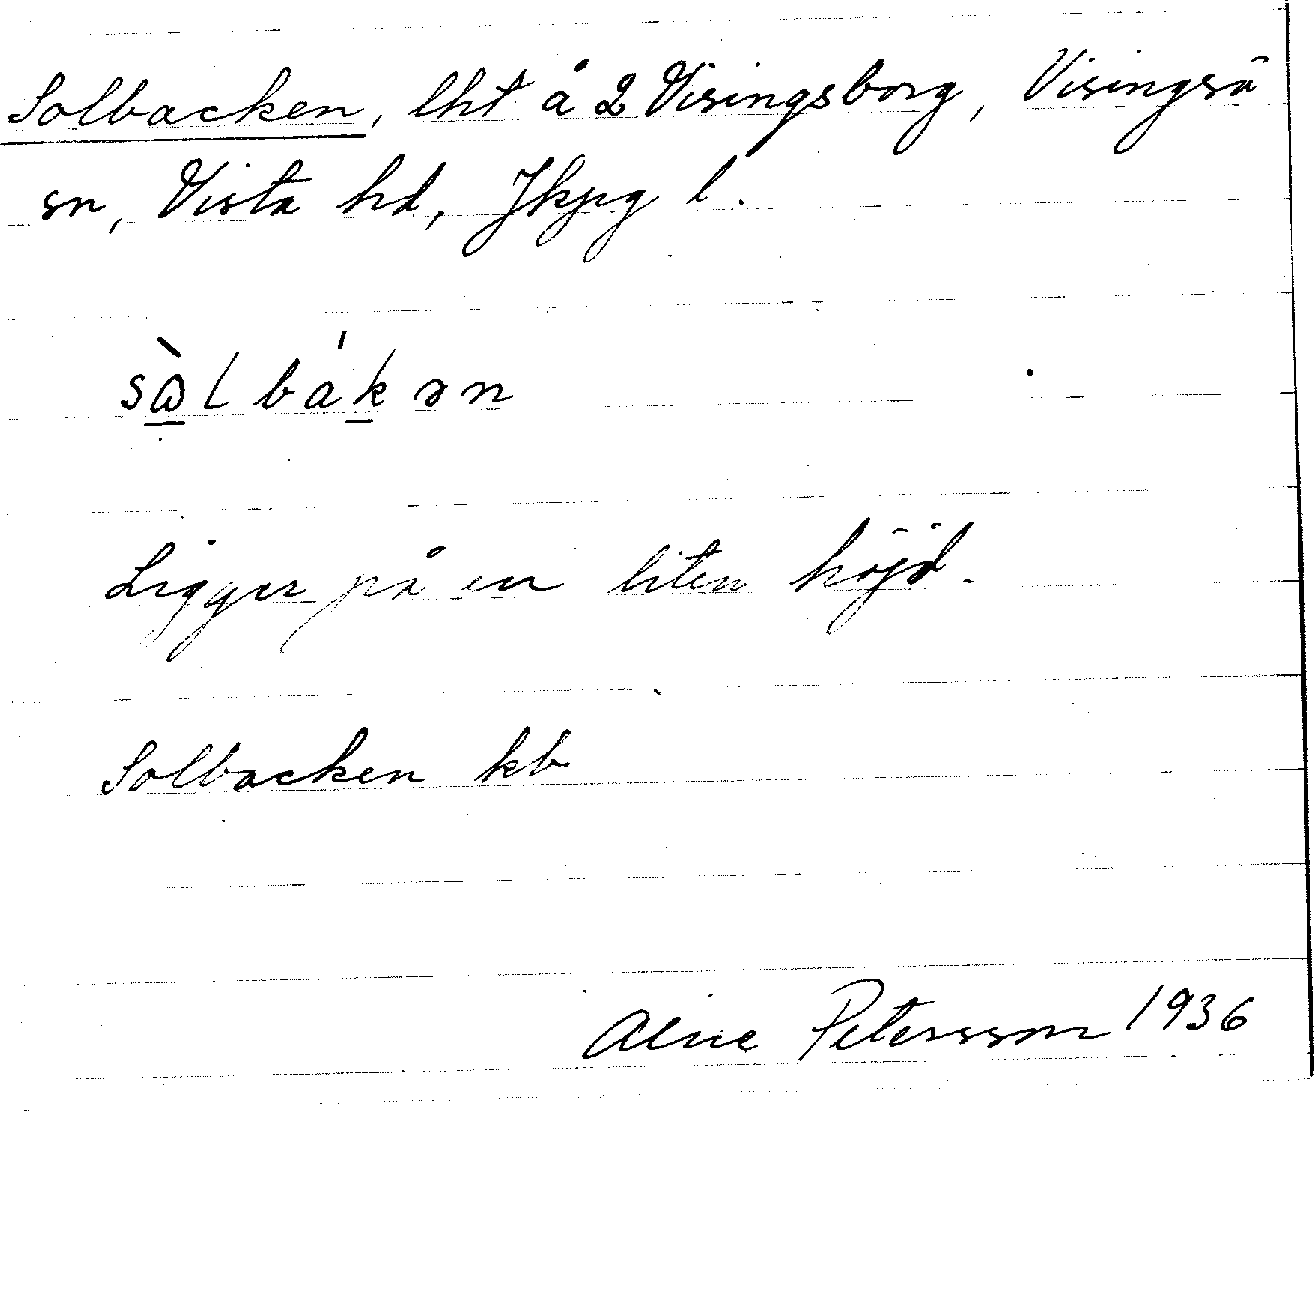 Solbacken, lht å 2 Visingsborg, Visingsö
sn, Vista hd, Jkpg l.
sὼlbákən
Ligger på en liten höjd.
Solbacken kb
Petersson 1936